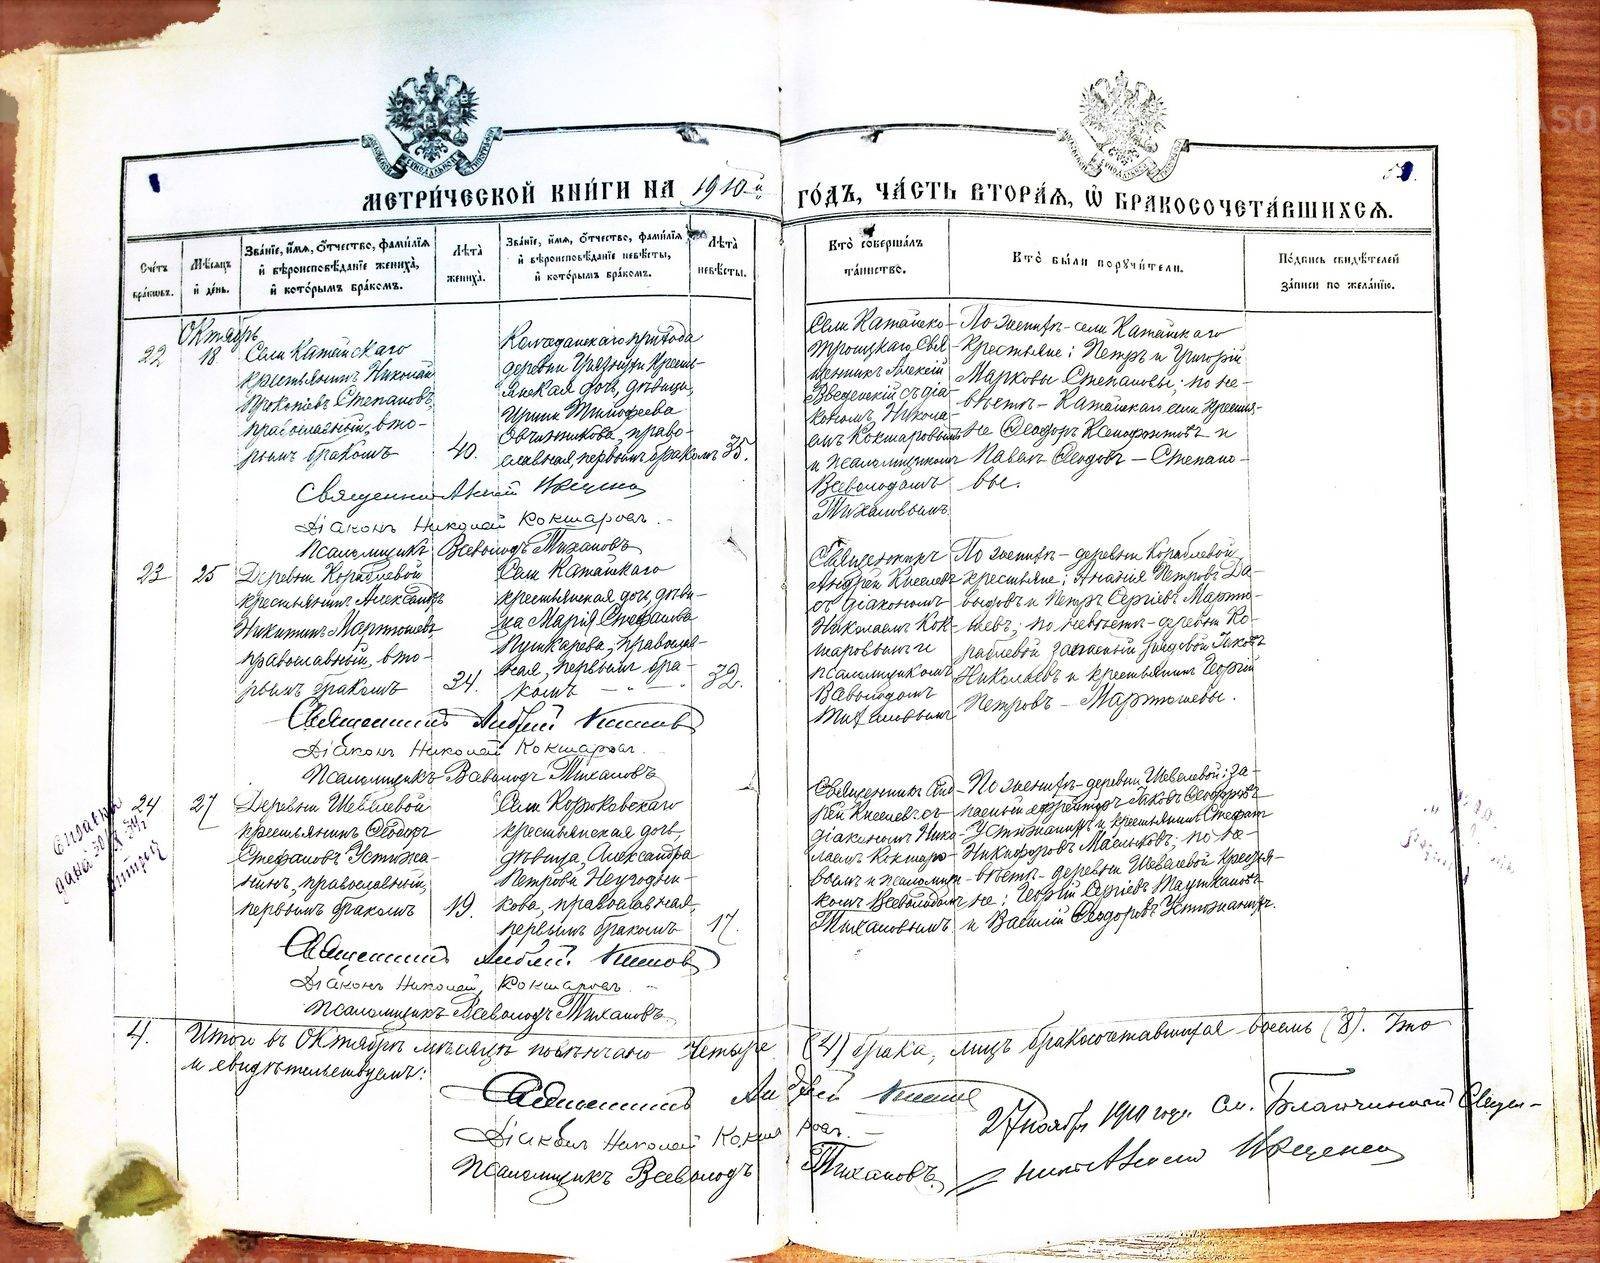 МЕТРИ́ЧЕСКОЙ КНИ́ГИ НА 1910-й ГО́ДЪ, ЧА́СТЬ ВТОРА́Я, Ѽ БРАКОСОЧЕТА́ВШИХСЯ.
Сче́тъ бра́ковъ.
Мѣ́сяцъ и҆ де́нь.
Зва́нїе, и҆́мя, ѻ҆́тчество, фами́лїя и҆ вѣроисповѣ́данїе жениха̀, и҆ кото́рымъ бра́комъ.
Лѣ́та жениха̀.
Зва́нїе, и҆́мя, ѻ҆́тчество, фами́лїя и҆ вѣроисповѣ́данїе невѣ́сты, и҆ кото́рымъ бра́комъ.
Лѣ́та невѣ́сты.
Кто̀ соверша́лъ та́инство.
Кто̀ бы́ли порꙋчи́тели.
По́дпись свидѣ́телей за́писи по жела́нїю.
22
Октябрь
18
Села Катайскаго
крестьянинъ Николай
Прокопіевъ Степановъ,
православный, вто-
рымъ бракомъ
40.
Колчеданскаго прихода
деревни
крестьянская дочь, дѣвица,
Ирина Тимофеева
Овчинникова, право-
славная, первымъ бракомъ
35.
Села Катайско-
Троицкаго Свя-
щенникъ Алексій
Введенскій съ діа-
кономъ Никола-
емъ Кокшаровымъ
и псаломщикомъ
Всеволодомъ
Тихановымъ
По женихѣ - села Катайскаго
крестьяне: Петръ и Григорій
Марковы Степановы; по не-
вѣстѣ - Катайскаго села крестья-
не Ѳеодоръ Ксенофонтовъ и
Павелъ - Степано-
вы.
Священникъ Алексій
Діаконъ Николай Кокшаровъ.
Псаломщикъ Всеволодъ Тихановъ
23
25
Деревни Кораблевой
крестьянинъ Александръ
Никитинъ Мартюшевъ
православный, вто-
рымъ бракомъ
34.
Села Катайскаго
крестьянская дочь, дѣви-
ца Марія Стефанова
Пушкарева, православ-
ная, первымъ бра-
комъ
32.
Священникъ
Андрей Киселевъ
съ діакономъ
Николаемъ Кок-
шаровымъ и
псаломщикомъ
Всеволодомъ
Тихановымъ
По женихѣ - деревни Кораблевой
крестьяне: Ананія Петровъ Да-
выдовъ и Петръ Сергіевъ Мартю-
шевъ; по невѣстѣ - деревни Ко-
раблевой запасный рядовой Іаковъ
Николаевъ и крестьянинъ Георгій
Петровъ - Мартюшевы.
Священникъ Андрей Киселевъ
Діаконъ Николай Кокшаровъ.
Псаломщикъ Всеволодъ Тихановъ
24
27
Деревни Шевелевой
крестьянинъ Ѳеодоръ
Стефановъ Устюжа-
нинъ, православный,
первымъ бракомъ
19.
Села Корюковскаго
крестьянская дочь,
дѣвица, Александра
Петрова Неугодни-
кова, православная,
первымъ бракомъ
17.
Священникъ Анд-
рей Киселевъ съ
діакономъ Нико-
лаемъ Кокшаро-
вымъ и псаломщи-
комъ Всеволодомъ
Тихановымъ
По женихѣ - деревни Шевелевой: за-
пасный ефрейторъ Іаковъ Ѳеодоровъ
Устюжанинъ и крестьянинъ Стефанъ
Никифоровъ Масльковъ; по не-
вѣстѣ - деревни Шевелевой крестья-
не: Георгій Сергіевъ Таушкановъ
и Василій Ѳеодоровъ Устюжанинъ.
Священникъ Андрей Киселевъ
Діаконъ Николай Кокшаровъ
Псаломщикъ Всеволодъ Тихановъ
4. Итого въ Октябрѣ мѣсяцѣ повѣнчано четыре (4) брака, лицъ бракосочетавшихся восемь (8). Что
и свидѣтельствуемъ:
Священникъ Андрей Киселевъ
Діаконъ Николай Кокшаровъ.
Псаломщикъ Всеволодъ Тихановъ.
27 ноября 1910 года. См. Благочинный Священ-
никъ Алексій